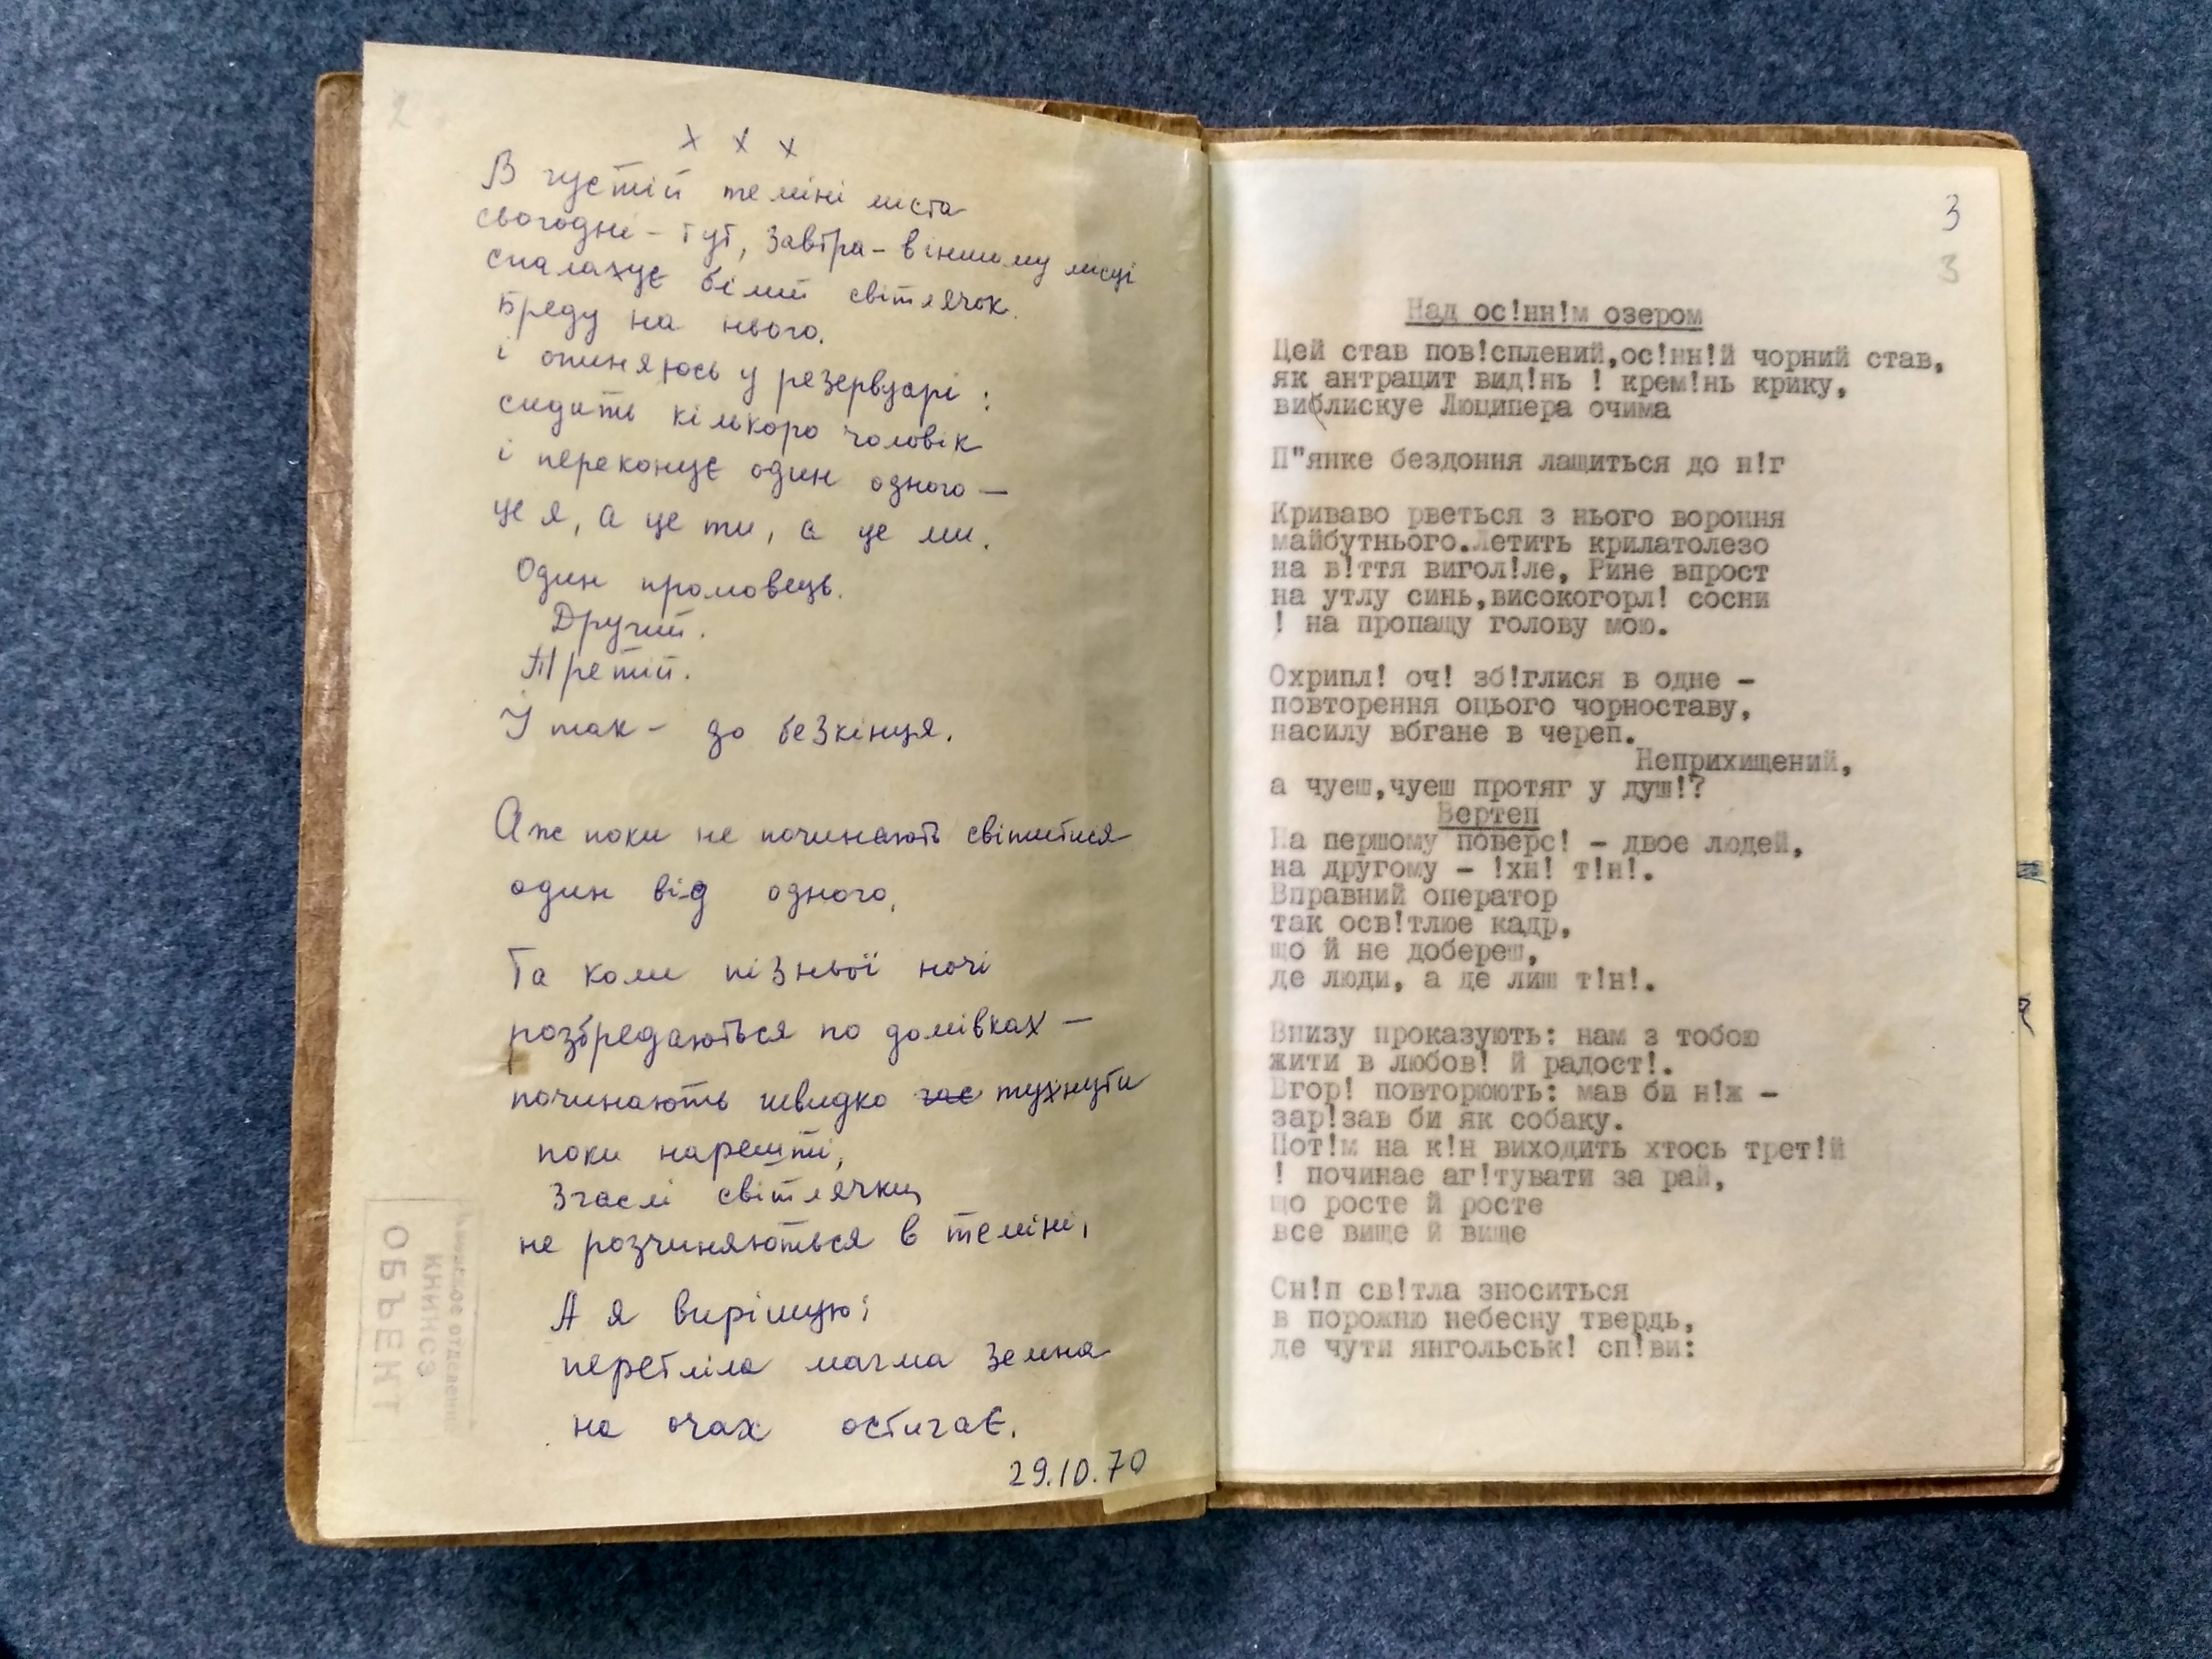 2
х х х
В густій темені міста
сьогодні - тут, завтра - в іншому місці
спалахує білий світлячок.
Бреду на нього.
і опиняюсь у резервуарі:
сидить кількоро чоловік
і переконує один одного —
це я, а це ти, а це ми.
Один промовець.
Другий.
Третій.
І так - до безкінця.
Аж поки не починають світитися
один від одного.
Та коли пізньої ночі
розбредаються по домівках —
починають швидко гас тухнути
поки нарешті,
Згаслі світлячки,
не розчиняються в темені,
А я вирішую:
перетліла магма земна
на очах остигає.
29.10.70
отделение
КНИИСЭ
ОБЪЕКТ
3
3
Над ос!нн!м озером
Цей став пов!сплений,ос!нн!й чорний став,
як антрацит вид!нь ! крем!нь крику,
виблискуе Люципера очима
П"янке бездоння лащиться до н!г
Криваво рветься з нього вороння
майбутнього.Летить крилатолезо
на в!ття вигол!ле, Рине впрост
на утлу синь,високогорл! сосни
! на пропащу голову мою.
Охрипл! оч! зб!глися в одне -
повторення оцього чорноставу,
насилу вбгане в череп.
Неприхищений,
а чуеш,чуеш протяг у душ!?
Вертеп
На першому поверс! - двое людей,
на другому - !хн! т!н!.
Вправний оператор
так осв!тлюе кадр,
що й не добереш,
де люди, а де лиш т!н!.
Внизу проказують: нам з тобою
жити в любов! й радост!.
Вгор! повторюють: мав би н!ж -
зар!зав би як собаку.
Пот!м на к!н виходить хтось трет!й
! починае аг!тувати за рай,
що росте й росте
все вище й вище
Сн!п св!тла зноситься
в порожню небесну твердь,
де чути янгольськ! сп!ви: